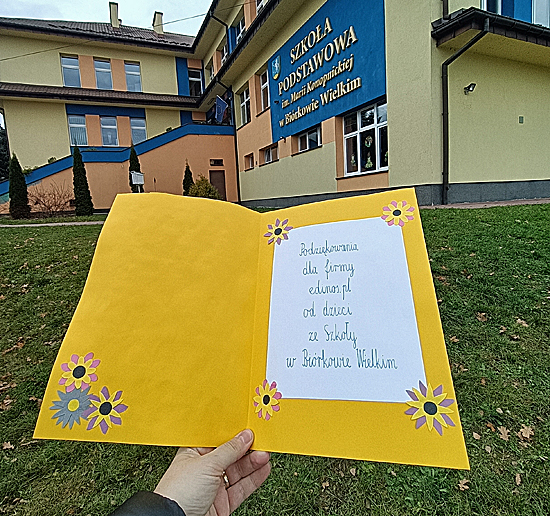 SZKOŁA
PODSTAWOWA
im. Marii Konopnickiej
w Biórkowie Wielkim
Podziękowania
dla firmy
edinos.pl
od dzieci
ze Szkoły
w Biórkowie Wielkim